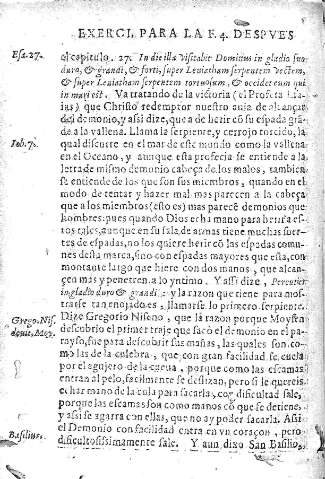 EXERCI. PARA LA F. 4. DESPVES
Esa. 27.
el capitulo. 27. In die illa visitabit Dominus in gladio suo
duro, & grandi, & forti, super Leviatham serpentem vectem,
& super Leviatham serpentem tortuosum, & occidet cum qui
in mari est. Va tratando de la victoria (el Profeta Isa-
ias) que Christo redemptor nuestro auia de alcançar
del demonio, y assi dize, que a de herir cõ su espada grã-
de a la vallena. Llama le serpiente, y cerrojo torcido, la
Iob. 7.
qual discurre en el mar de este mundo como la vallena
en el Oceano, y aunque esta profecia se entiende a la
letra de mismo demonio cabeça de los malos, tambien
se entiende de los que son sus miembros, quando en el
modo de tentar y hazer mal mas parecen a la cabeça
que a los miembros (esto es) mas parecē demonios que
hombres: pues quando Dios echa mano para herir a es-
tos tales, aunque en su sala de armas tiene muchas suer-
tes de espadas, no los quiere herir cõ las espadas comu-
nes desta marca, sino con espadas mayores que esta, con
montante largo que hiere con dos manos, que alcan-
çen mas y penetren a lo yntimo. Y assi dize, Percutiet
in gladio duro & grandi: y la razon que tiene para mos-
trarse tan enojado es, llamarse lo primero serpiente.
Grego. Nis.
Dize Gregorio Niseno, que la razon porque Moysen
descubrio el primer traje que sacò el demonio en el pa-
rayso, fue para descubrir sus mañas, las quales son co-
mo las de la culebra, que con gran facilidad se cuela
por el agujero de la cueua, porque como las escamas
entran al pelo, facilmente se deslizan, pero si le quereis
echar mano de la cula para sacarla, con dificultad sale,
porque las escamas son como manos cõ que se detiene,
y assi se agarra con ellas, que no ay poder sacarla. Assi
el Demonio con facilidad entra en vn coraçon, pero
Basilius.
dificultosissimamente sale. Y aun dixo San Basilio,